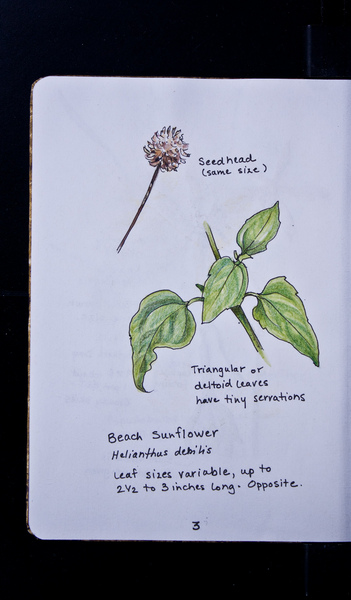 Seedhead
(same size)
Triangular or
deltoid leaves
have tiny serrations
Beach Sunflower
Helianthus debilis
Leaf sizes variable, up to
2 1/2 to 3 inches long. Opposite.
3